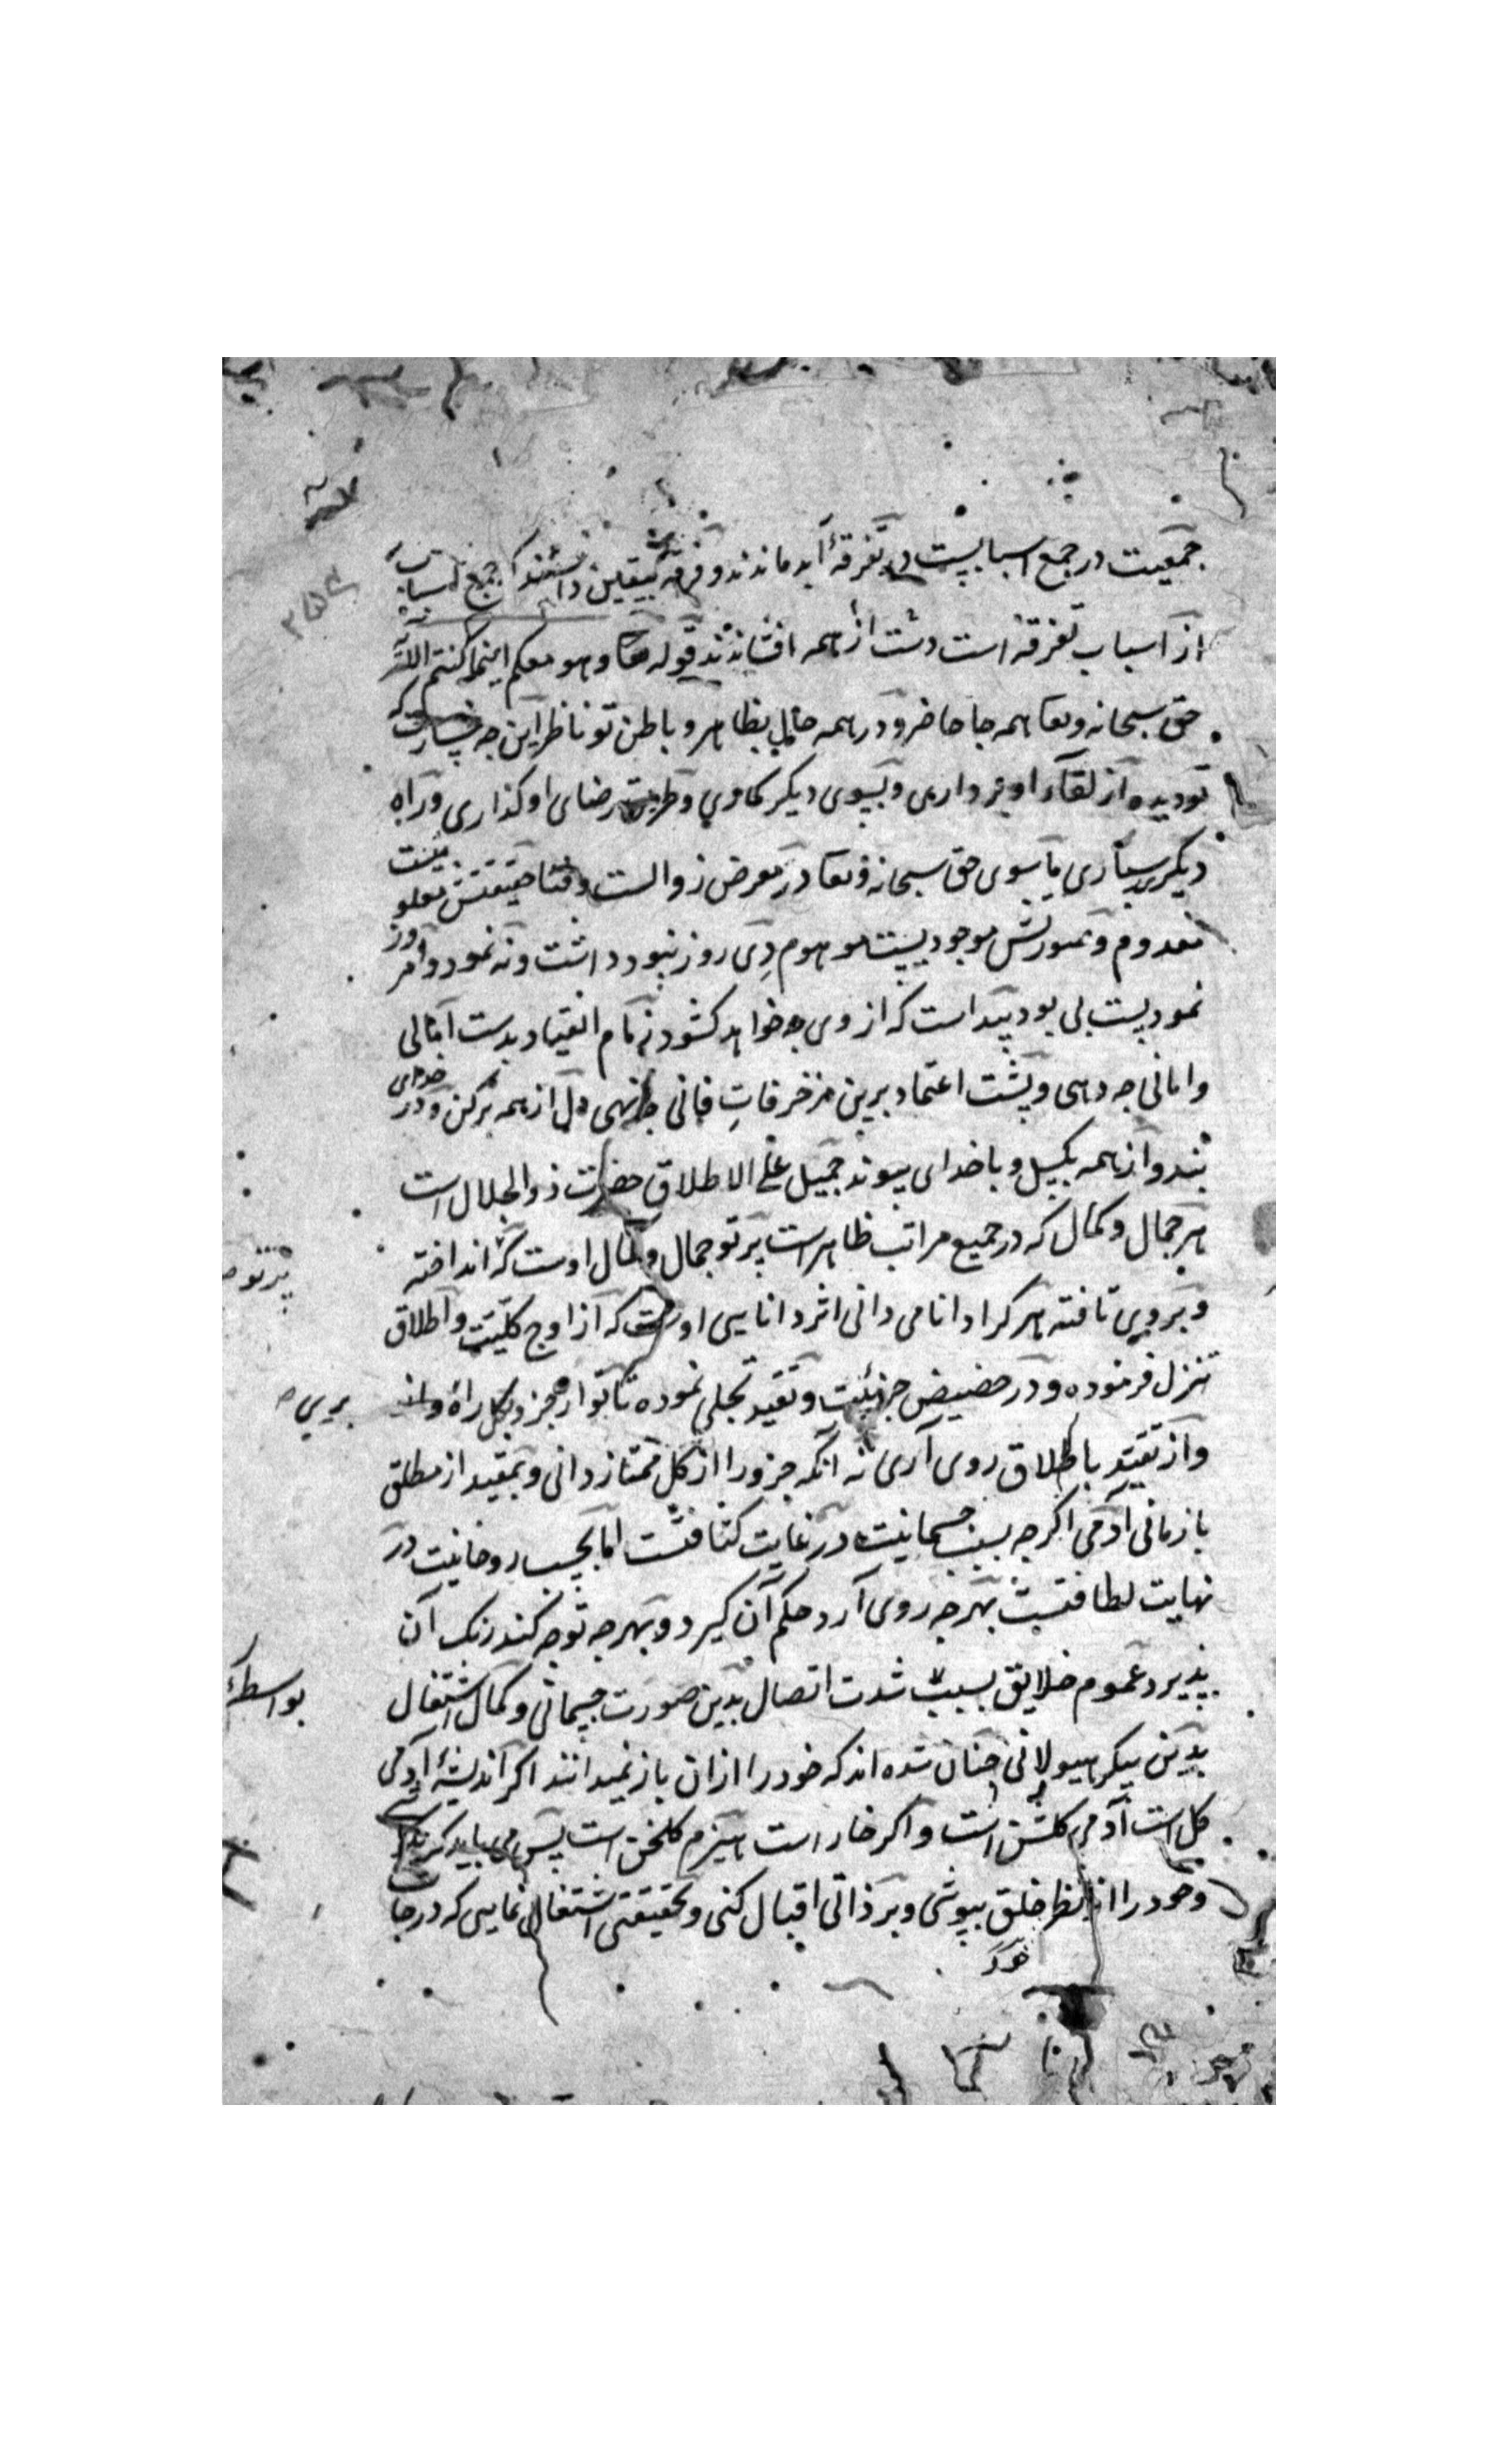 جمعیت در جمع اسبابیست در تفرقهٔ ابد ماندند و فرقه بیقین دانستند که جمع اسباب
از اسباب تفرقه است دست از همه افشاندند قوله تعا وهو معکم اینما کنتم الله
حق سبحانه وتعا همه جا حاضر و در همه حال بظاهر و باطن تو ناظر این چه خسارت که
تو دیده از لقاء او برداری و بسوی دیگر کاوی و طریق رضای او گذاری و راه
دیگر سپاری ماسوی حق سبحانه وتعا در معرض زوالست و فنا حقیقتش معلومیست
معدوم و صورتش موجودیست موهوم دی روز نبود داشت و نه نمود و امروز
نمودیست بی بود پیداست که از وی چه خواهد کشود زمام انقیاد بدست آمالی
و امانی چه دهی و پشت اعتماد برین مزخرفات فانی چه نهی دل از همه برکن و در خدای
بند و از همه بگسل و با خدای پیوند جمیل علی الاطلاق حضرت ذوالجلال است
هر جمال و کمال که در جمیع مراتب ظاهر است پرتو جمال و کمال اوست که انداخته
پرتو
و بروی تافته هر کرا دانا می دانی اثر دانایی اوست که از اوج کلیت و اطلاق
تنزل فرموده و در حضیض جزئیت و تقید تجلی نموده تا تو از جزو بکل راه
بری
و از تقید باطلاق روی آری نه آنکه جزو را از کل ممتاز دانی و بمقید از مطلق
باز مانی آدمی اگرچه بسبب جسمانیت در غایت کثافتست اما بحسب روحانیت در
نهایت لطافتست بهر چه روی آرد حکم آن گیرد و بهر چه توجه کند رنگ آن
پذیرد عموم خلایق بسبب شدت اتصال بدین صورت جسمانی و کمال اشتغال
بواسطهٔ
بدین پیکر هیولانی چنان شده اند که خود را ازان باز نمیدانند اگر اندیشهٔ آدمی
گل است آدمی گلشن است و اگر خار است هیزم گلخن است پس می باید که
و خود را از نظر خلق بپوشی و بر ذاتی اقبال کنی و بحقیقتی اشتغال نمایی که درجا